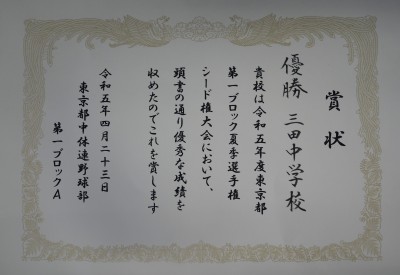 賞状
優勝 三田中学校
貴校は令和五年度東京都
第一ブロック夏季選手権
シード権大会において、
頭書の通り優秀な成績を
収めたのでこれを賞します
令和五年四月二十三日
東京都中体連野球部
第一ブロックA